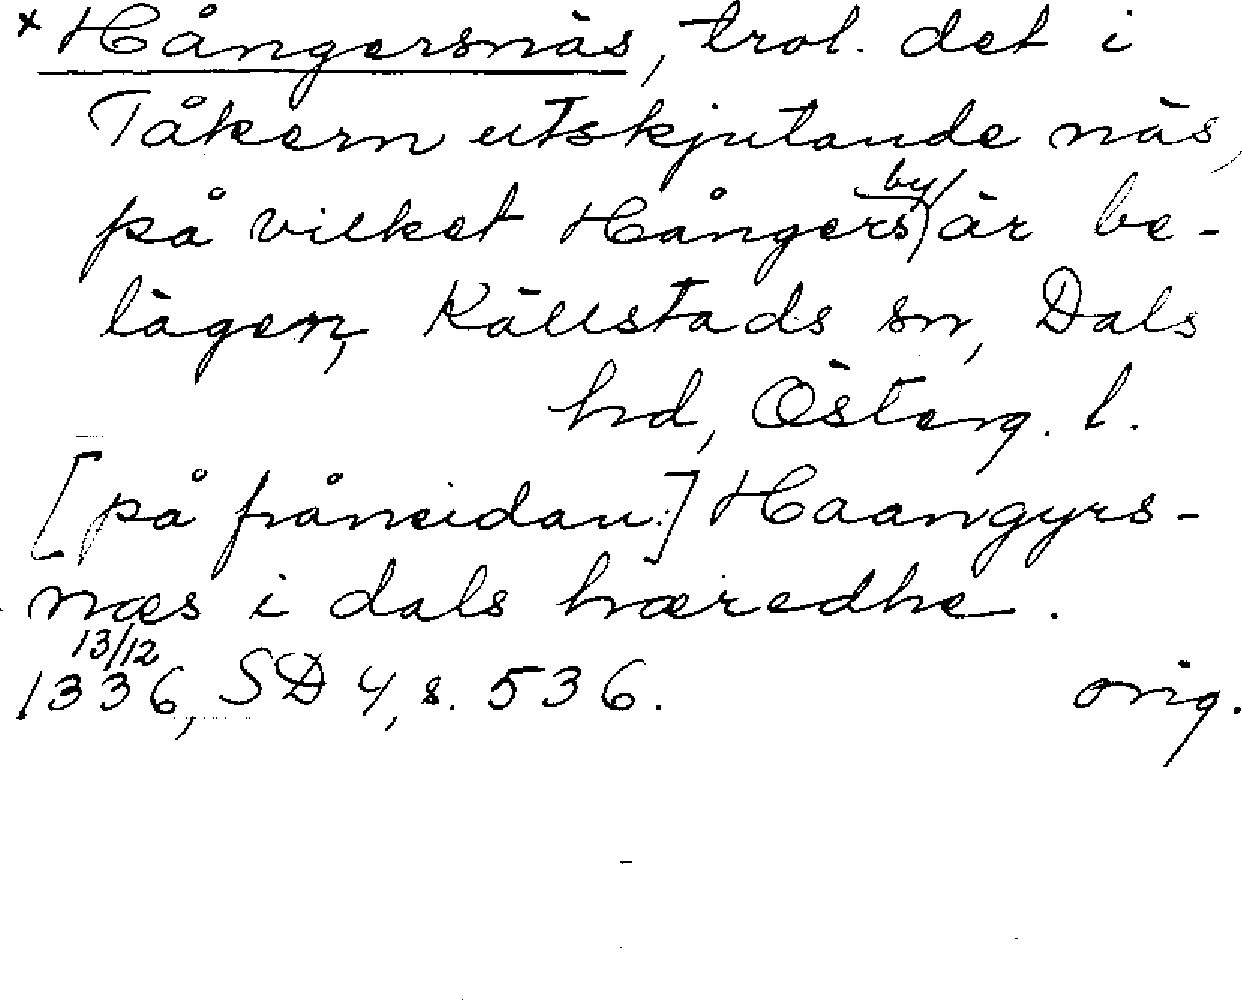 × Hångersnäs, trol. det i
Tåkern utskjutande näs,
på vilket Hångers by är be-
lägen, Källstads sn, Dals
hd, Österg. l.
[på frånsidan:] Haangyrs-
næs i dals hæredhe.
13/12
1336, SD 4, s. 536. orig.